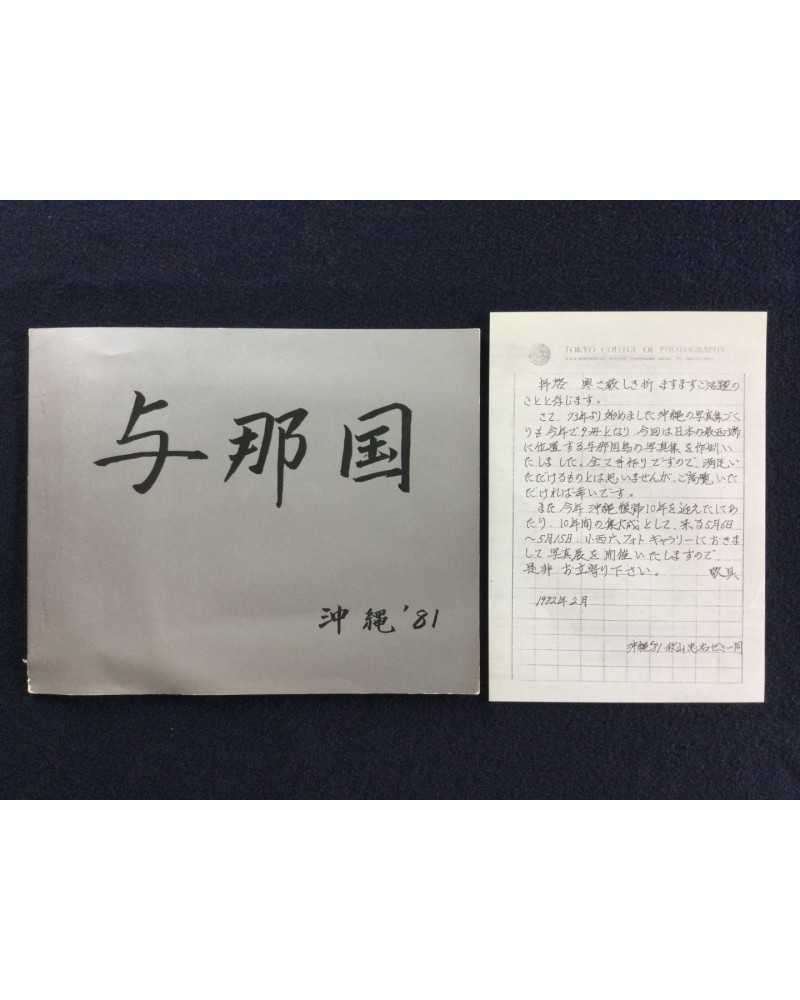 与那国
沖縄'81
TOKYO COLLEGE OF PHOTOGRAPHY
拝啓 寒さ厳しき折 ますますご活躍の
ことと存じます。
さて、'73年より始めました沖縄の写真集づく
りも今年で9冊となり、今回は日本の最西端
に位置する与那国島の写真集を作製い
たしました。全て手作りですので、満足い
ただけるものとは思いませんが、ご高覧いた
だければ幸いです。
また今年沖縄復帰10年を迎えたにあ
たり、10年間の集大成として、来る5月6日
〜5月15日、小西六フォトギャラリーにおきま
して写真展を開催いたしますので、
是非お立寄り下さい。 敬具
1982年2月
沖縄'81 ゼミ一同